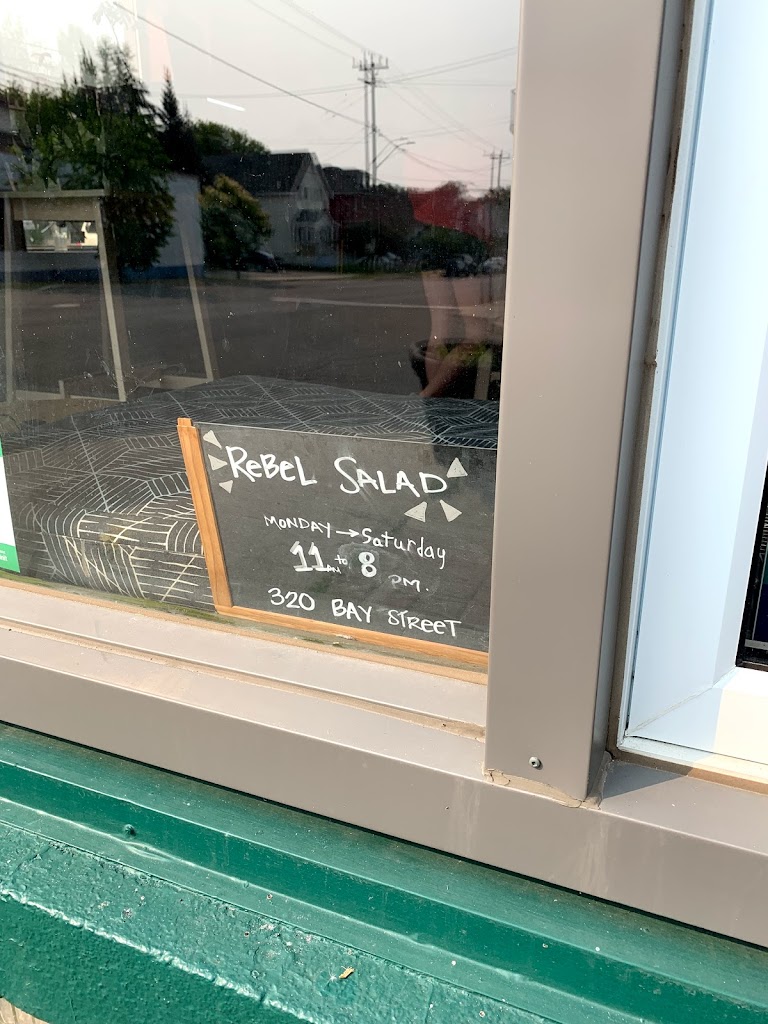 ReBeL SALAD
MONDAY → Saturday
11 AM to 8 PM.
320 BAY STREET